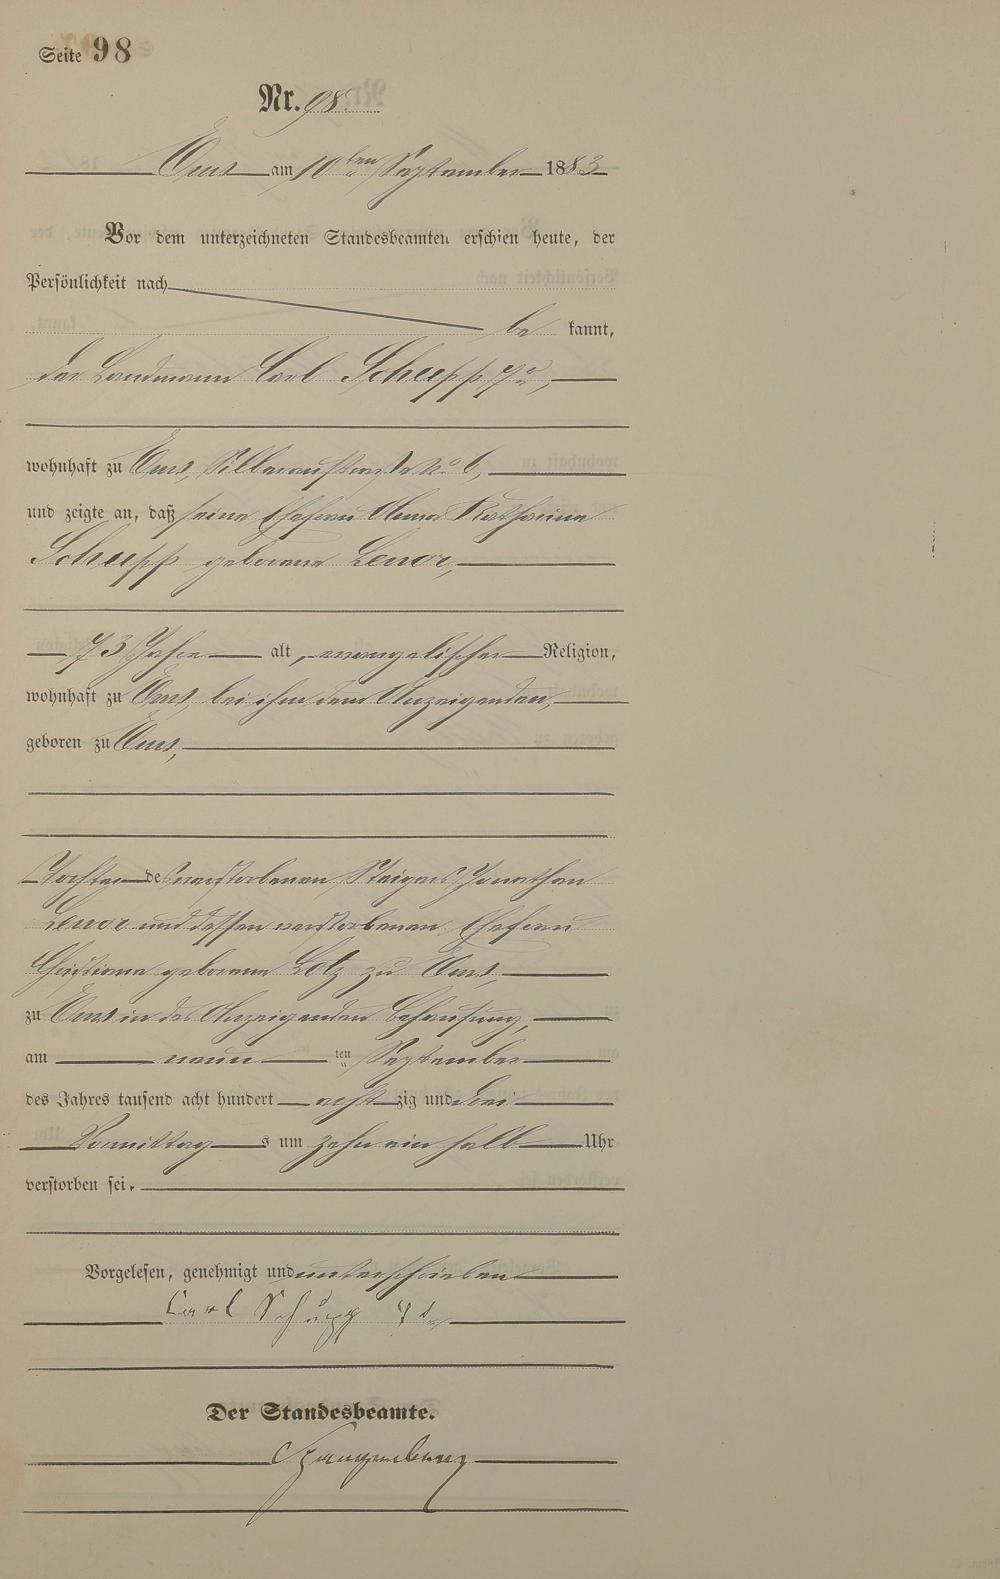 Seite 98
Nr. 98.
Ems am 10ten September 1883
Vor dem unterzeichneten Standesbeamten erschien heute, der
Persönlichkeit nach
be kannt,
der Landmann Carl Schupp
wohnhaft zu Ems, Silberaustraße No 6,
und zeigte an, daß seine Ehefrau Anna Katharina
Schupp geborene Lenor,
73 Jahre alt, evangelischer Religion,
wohnhaft zu Ems, bei ihm dem Anzeigenden,
geboren zu Ems,
Tochter des verstorbenen Steigers Jonathan
Lenor und dessen verstorbenen Ehefrau
Christiane geborenen Lotz zu Ems,
zu Ems in des Anzeigenden Behausung,
am neun ten September
des Jahres tausend acht hundert acht zig und drei
Vormittag s um zehn ein halb Uhr
verstorben sei.
Vorgelesen, genehmigt und unterschrieben
Carl Schupp
Der Standesbeamte.
Spangenberg